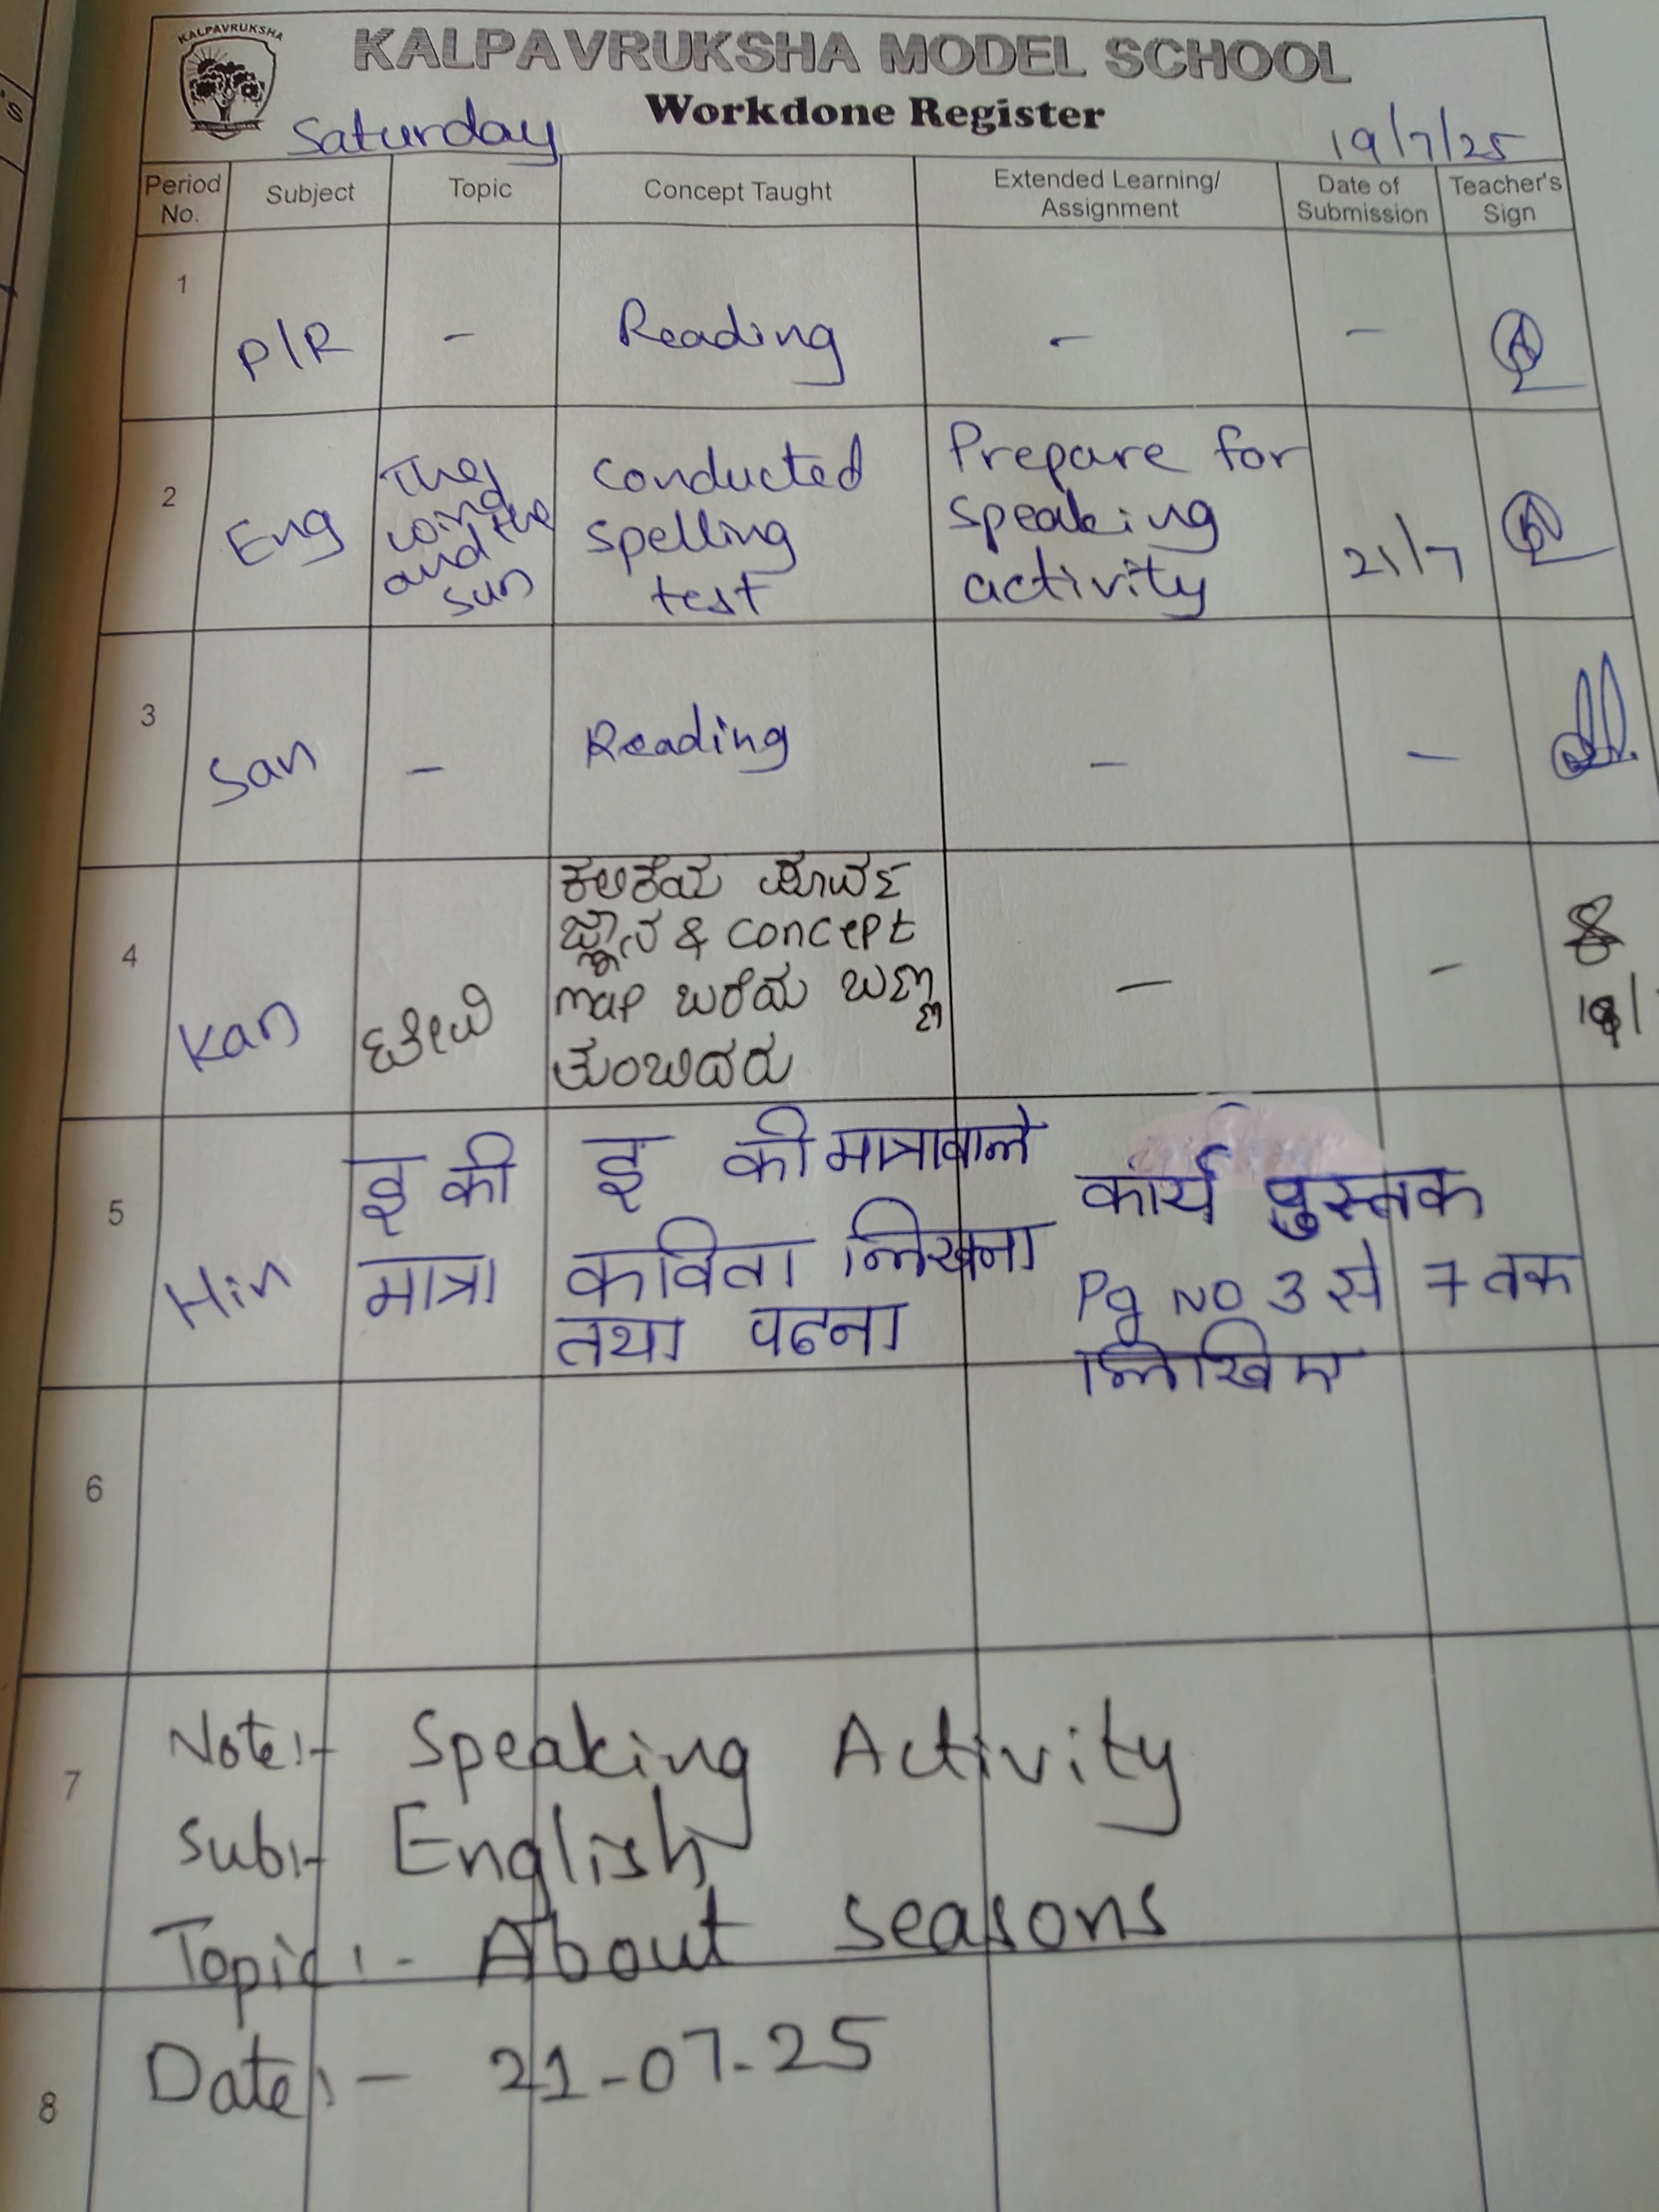 KALPAVRUKSHA
KALPAVRUKSHA MODEL SCHOOL
Workdone Register
Saturday 19/7/25
Period No. Subject Topic Concept Taught Extended Learning/ Assignment Date of Submission Teacher's Sign
1 P/R - Reading - -
2 Eng The wind and the sun conducted spelling test Prepare for speaking activity 21/7
3 San - Reading - -
4 Kan ಕಲಿಕೆಯ ಪೂರ್ವ
ಜ್ಞಾನ & concept
map ಬರೆದು ಬಣ್ಣ
ತುಂಬಿದರು - -
5 Hin इ की मात्रा इ की मात्रावाले
कविता लिखना
तथा पढना
कार्य पुस्तक
Pg No 3 से 7 तक
लिखिए
6
7
Note:- Speaking Activity
Sub:- English
Topic:- About seasons
8
Date:- 21-07-25